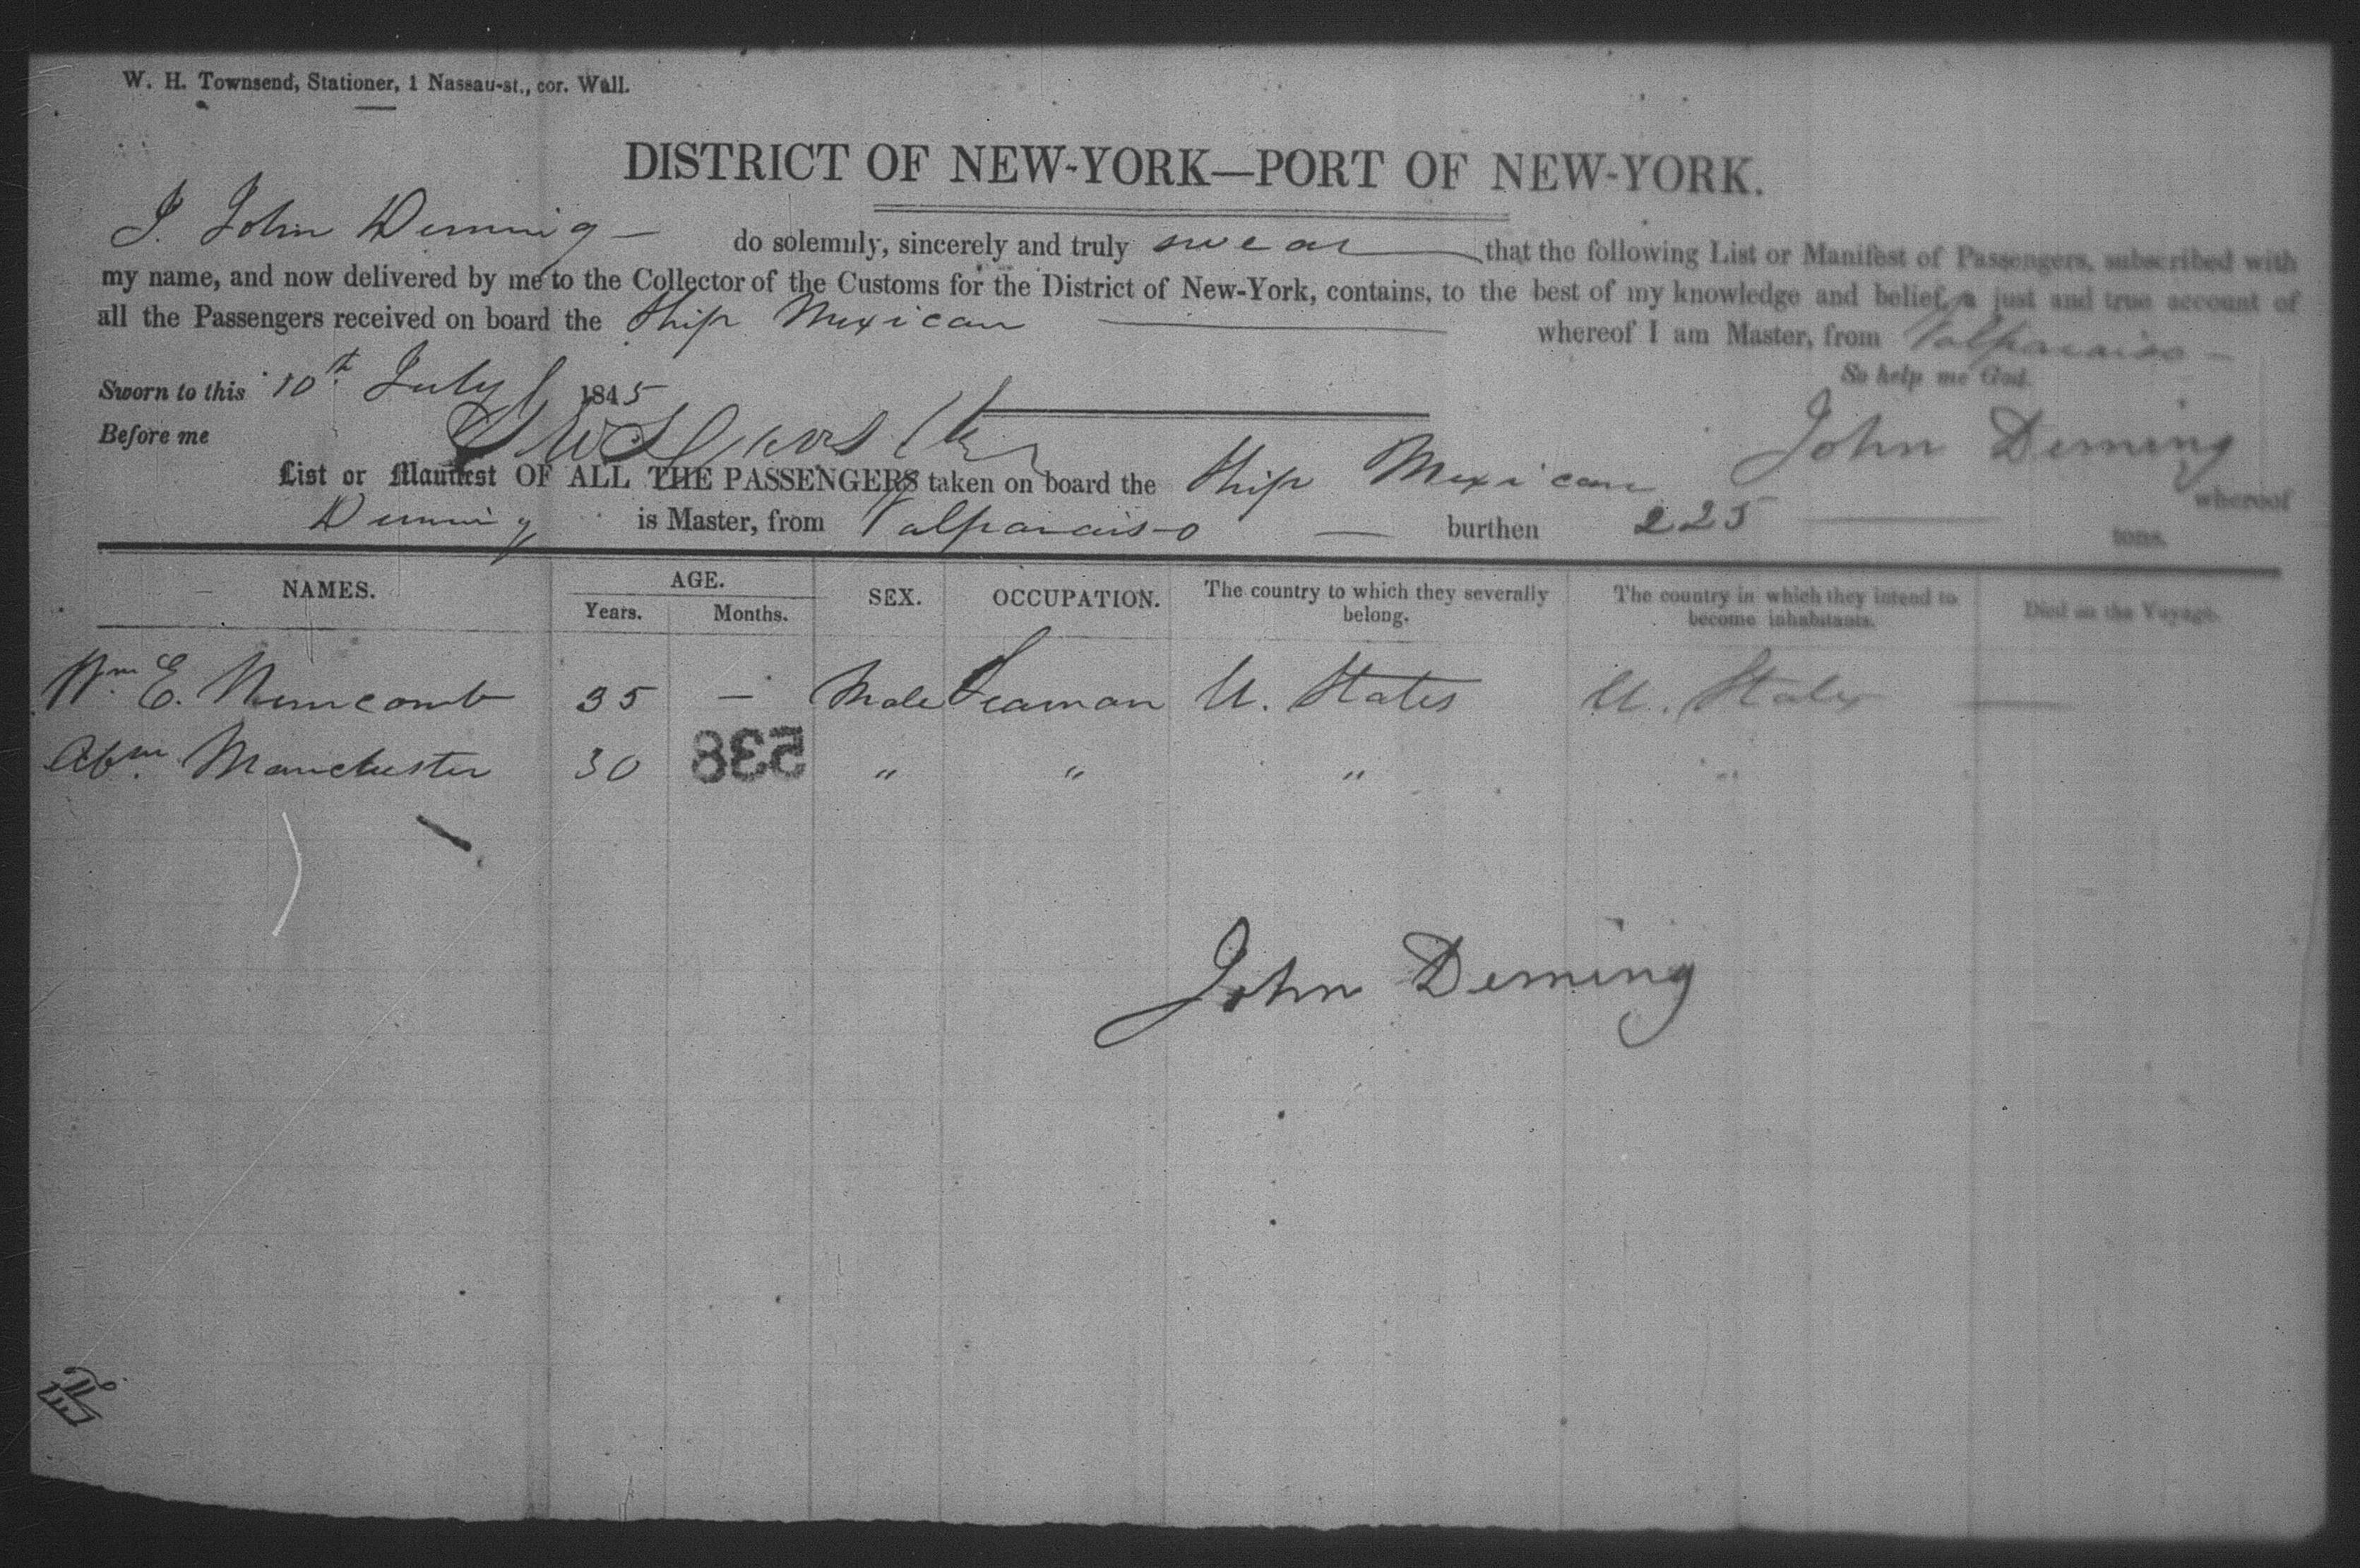 W. H. Townsend, Stationer, 1 Nassau-st., cor. Wall.
DISTRICT OF NEW-YORK—PORT OF NEW-YORK.
I. John Deming — do solemnly, sincerely and truly swear that the following List or Manifest of Passengers, subscribed with
my name, and now delivered by me to the Collector of the Customs for the District of New-York, contains, to the best of my knowledge and belief, a just and true account of
all the Passengers received on board the Ship Mexican whereof I am Master, from Valparaiso —
So help me God.
Sworn to this 10th July 1845
John Deming
Before me
List or Manifest OF ALL THE PASSENGERS taken on board the Ship Mexican whereof
Deming is Master, from Valparaiso — burthen 225 tons.
NAMES. AGE. SEX. OCCUPATION. The country to which they severally belong. The country in which they intend to become inhabitants. Died on the Voyage.
Years. Months.
Wm E. 35 — Male Seaman U. States U. States —
Abm. Manchester 30 " " " "
538
John Deming